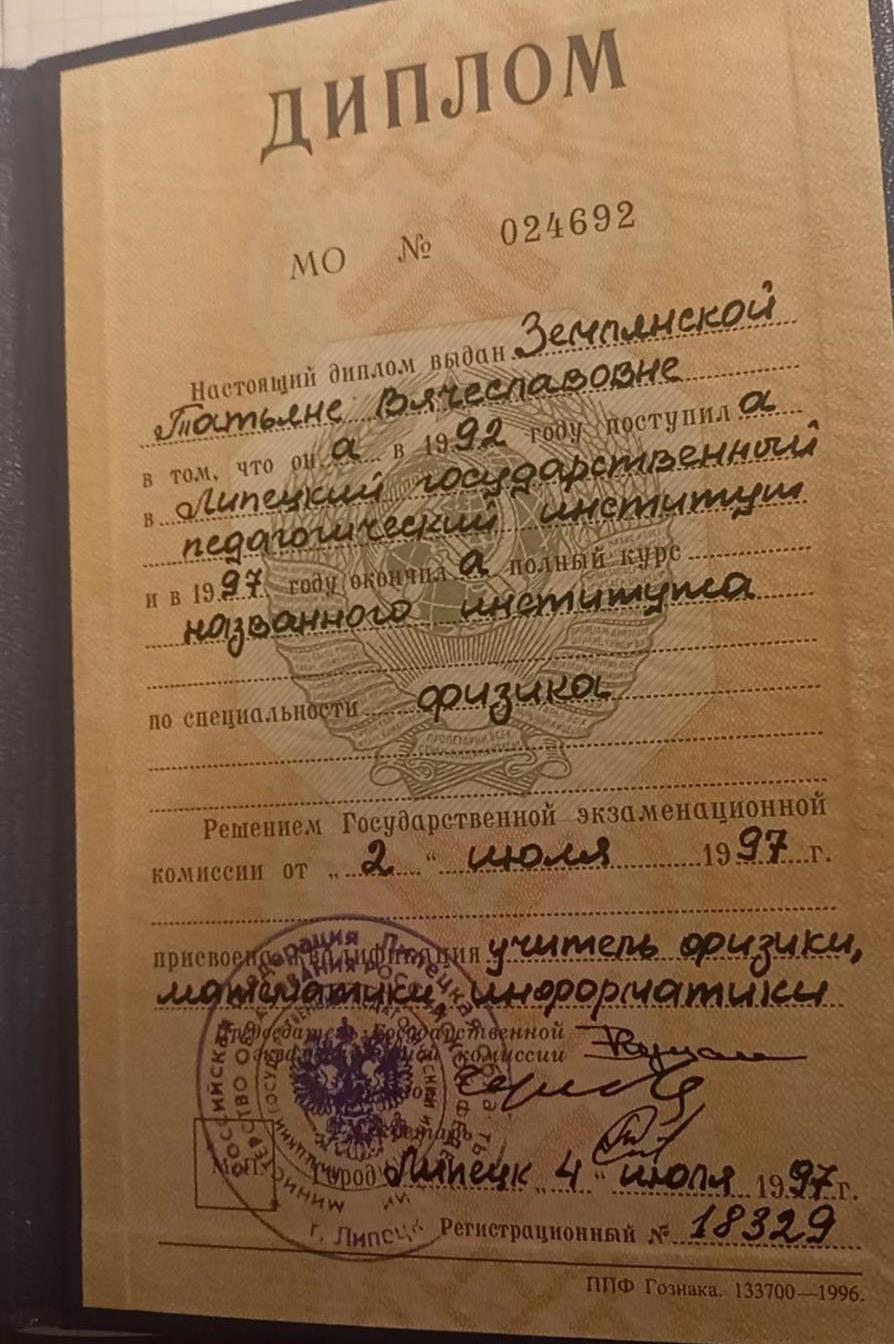 ДИПЛОМ
МО № 024692
Настоящий диплом выдан Землянской
Татьяне Вячеславовне
в том, что он а в 1992 году поступил а
в Липецкий государственный
педагогический институт
и в 1997 году окончил а полный курс
названного института
по специальности физика
Решением Государственной экзаменационной
комиссии от „ 2 “ июля 1997 г.
присвоена квалификация учитель физики,
математики, информатики
Председатель Государственной
экзаменационной комиссии
Город Липецк „ 4 “ июля 1997 г.
Регистрационный № 18329
ППФ Гознака. 133700—1996.
Российская Федерация Липецкая
г. Липецк